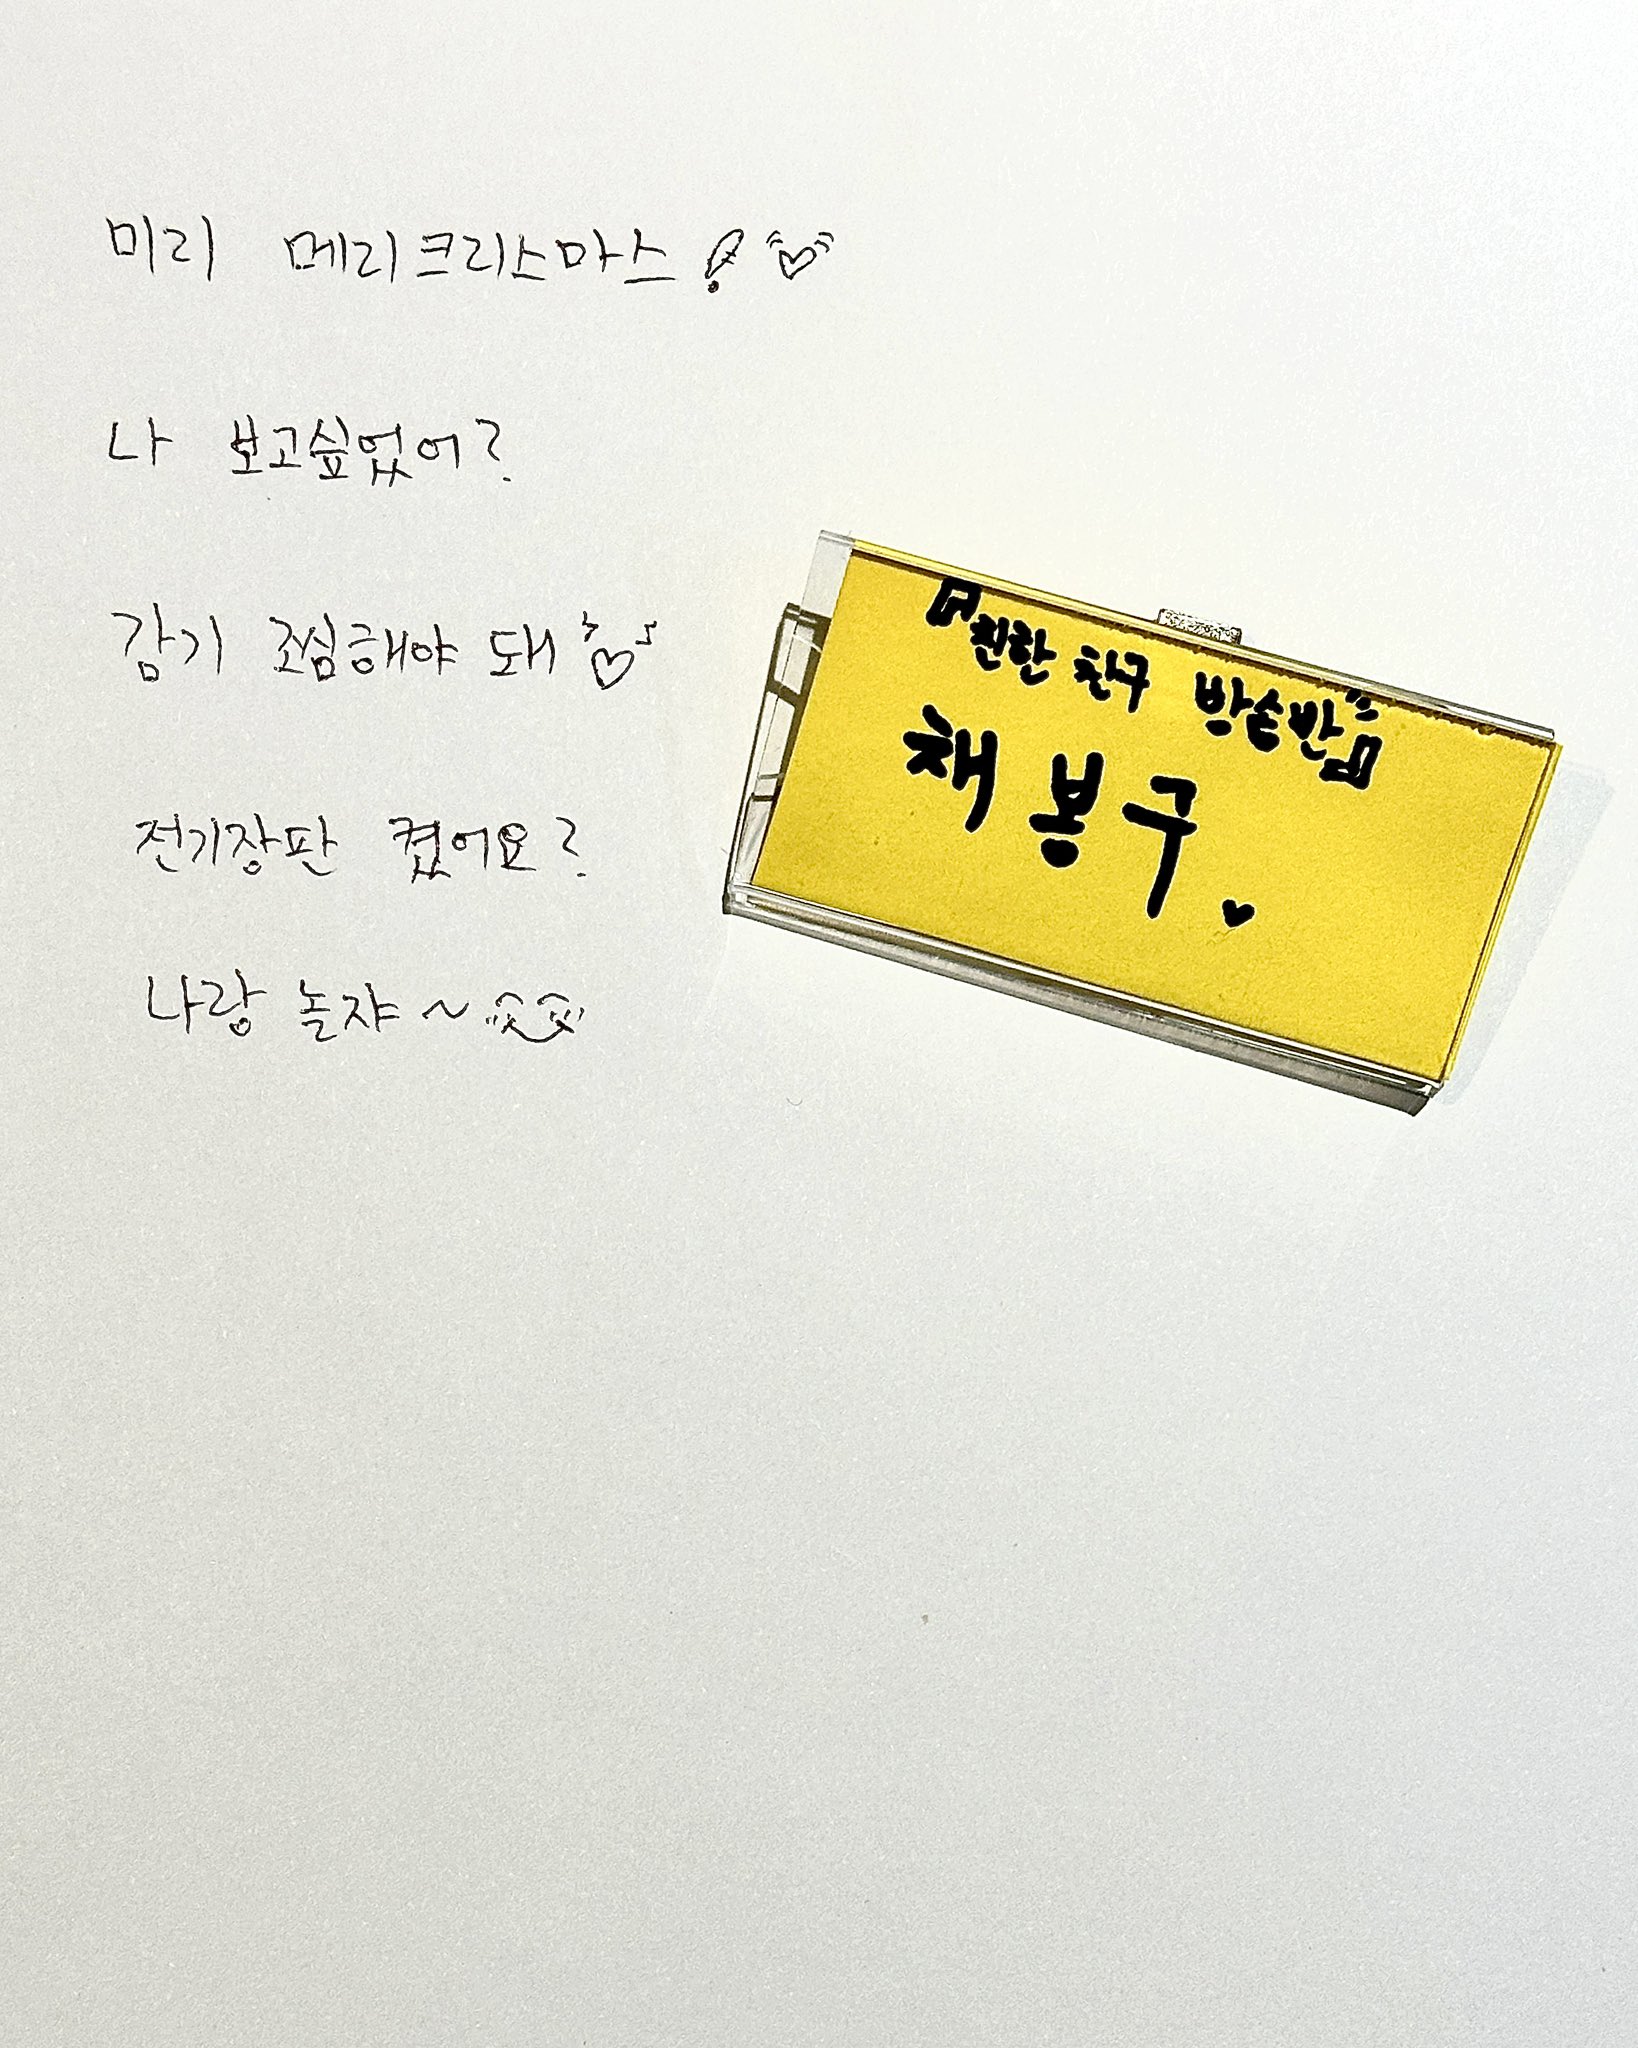 미리 메리크리스마스!♡
나 보고싶었어?
감기 조심해야 돼♡
전기장판 켰어요?
나랑 놀쟈~
「친한 친구 방송반」
채봉구♥